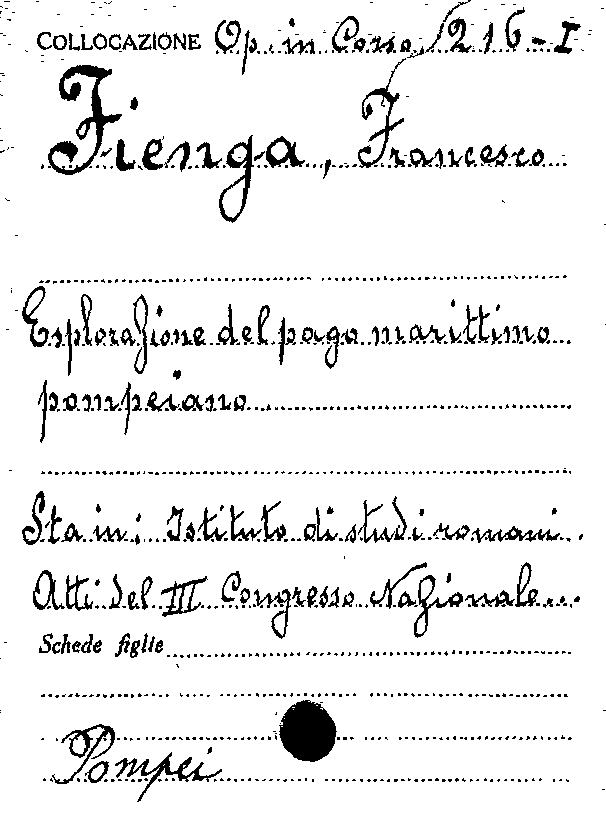 COLLOCAZIONE Op. in Corso 216-I
Fienga, Francesco
Esplorazione del pago marittimo
pompeiano
Sta in: Istituto di studi romani.
Atti del III Congresso Nazionale...
Schede figlie
Pompei